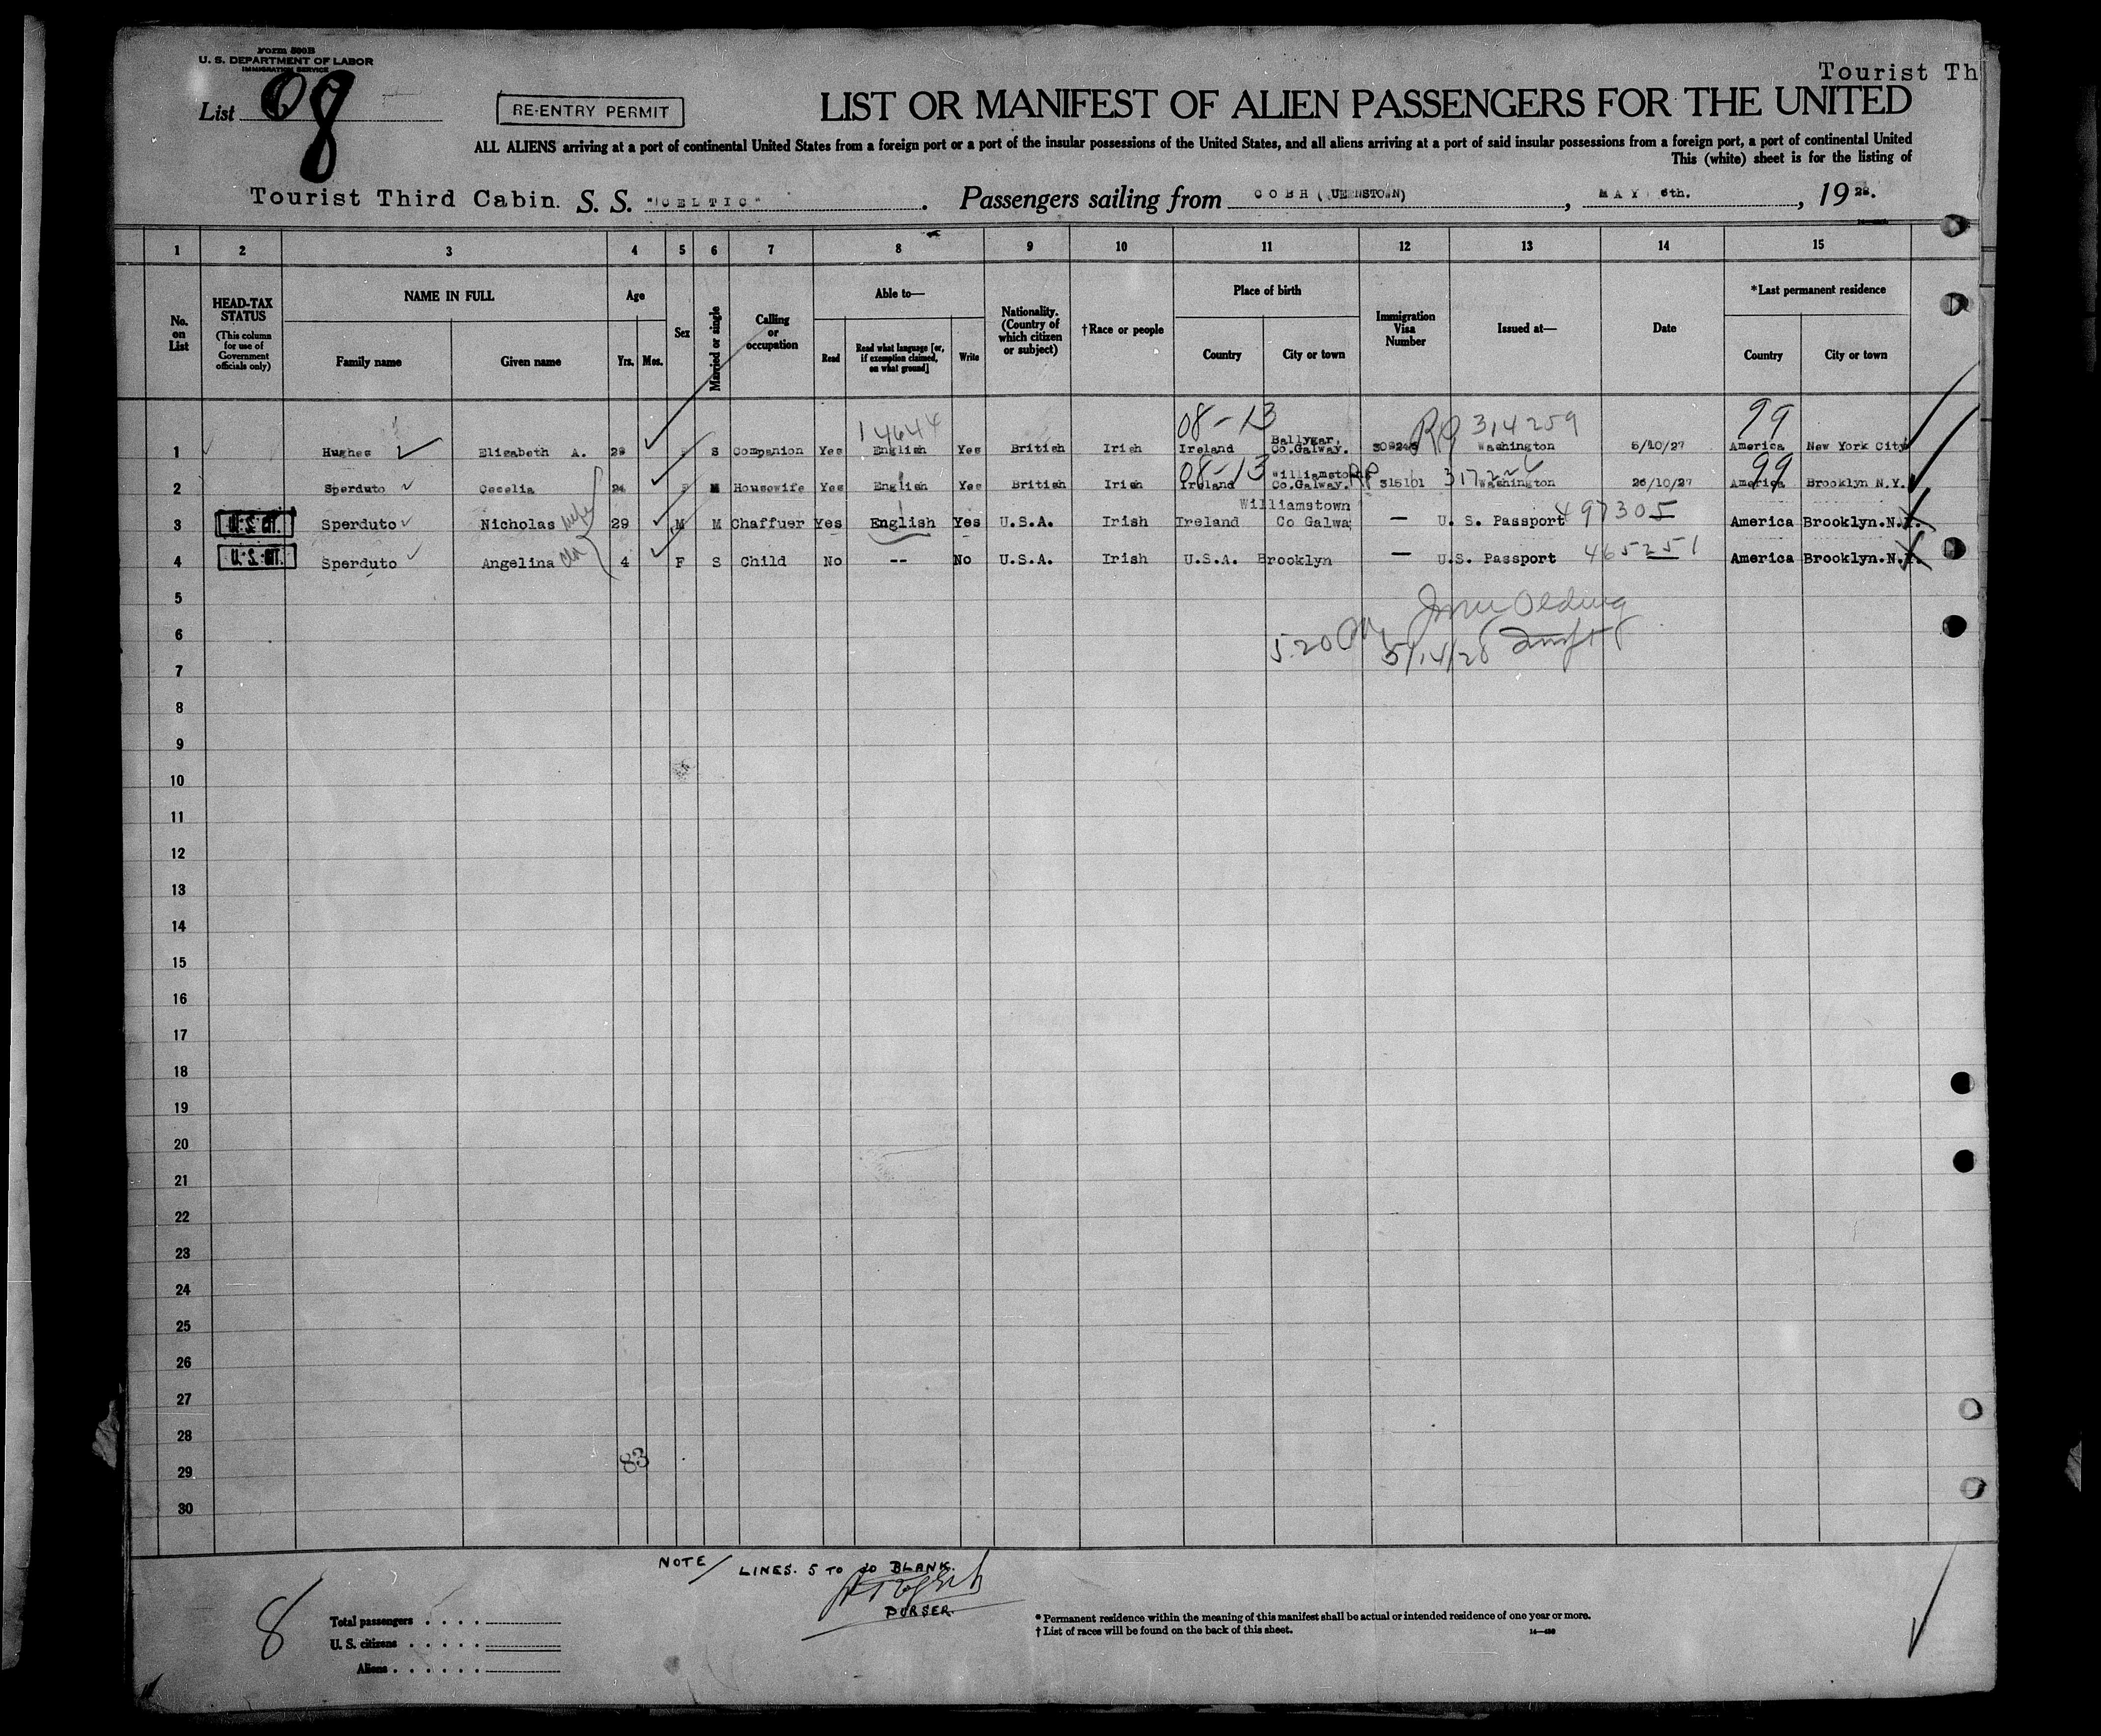 Form 500B
U. S. DEPARTMENT OF LABOR
IMMIGRATION SERVICE
Tourist Th
List 8
RE-ENTRY PERMIT
LIST OR MANIFEST OF ALIEN PASSENGERS FOR THE UNITED
ALL ALIENS arriving at a port of continental United States from a foreign port or a port of the insular possessions of the United States, and all aliens arriving at a port of said insular possessions from a foreign port, a port of continental United
This (white) sheet is for the listing of
Tourist Third Cabin. S. S. "CELTIC". Passengers sailing from COBH (UEENSTOWN), MAY 6th., 1928.
1 2 3 4 5 6 7 8 9 10 11 12 13 14 15
No. on List
HEAD-TAX STATUS
(This column for use of Government officials only)
NAME IN FULL
Family name Given name
Age
Yrs. Mos.
Sex
Married or single
Calling or occupation
Able to—
Read Read what language [or, if exemption claimed, on what ground] Write
Nationality. (Country of which citizen or subject)
†Race or people
Place of birth
Country City or town
Immigration Visa Number
Issued at—
Date
*Last permanent residence
Country City or town
14644 08-13 RP 314259 99
1 Hughes Elizabeth A. 29 F S Companion Yes English Yes British Irish Ireland Ballygar, Co.Galway. Washington 5/10/27 America New York City
08-13 RP 99
2 Sperduto Cecelia 24 F M Housewife Yes English Yes British Irish Ireland Williamstown Co.Galway. 315101 Washington 26/10/27 America Brooklyn N.Y.
3 U.S. CIT. Sperduto Nicholas 29 M M Chaffuer Yes English Yes U.S.A. Irish Ireland Williamstown Co Galwa — U. S. Passport 497305 America Brooklyn.N.Y.
4 U.S. CIT. Sperduto Angelina 4 F S Child No -- No U.S.A. Irish U.S.A. Brooklyn — U.S. Passport 465251 America Brooklyn.N.Y.
5
6
5.20 PM 5/14/28
7
8
9
10
11
12
13
14
15
16
17
18
19
20
21
22
23
24
25
26
27
28
83
29
30
NOTE/ LINES. 5 TO 30 BLANK.
PURSER.
8
Total passengers . . . .
U. S. citizens . . . . .
Aliens . . . . . .
* Permanent residence within the meaning of this manifest shall be actual or intended residence of one year or more.
† List of races will be found on the back of this sheet.